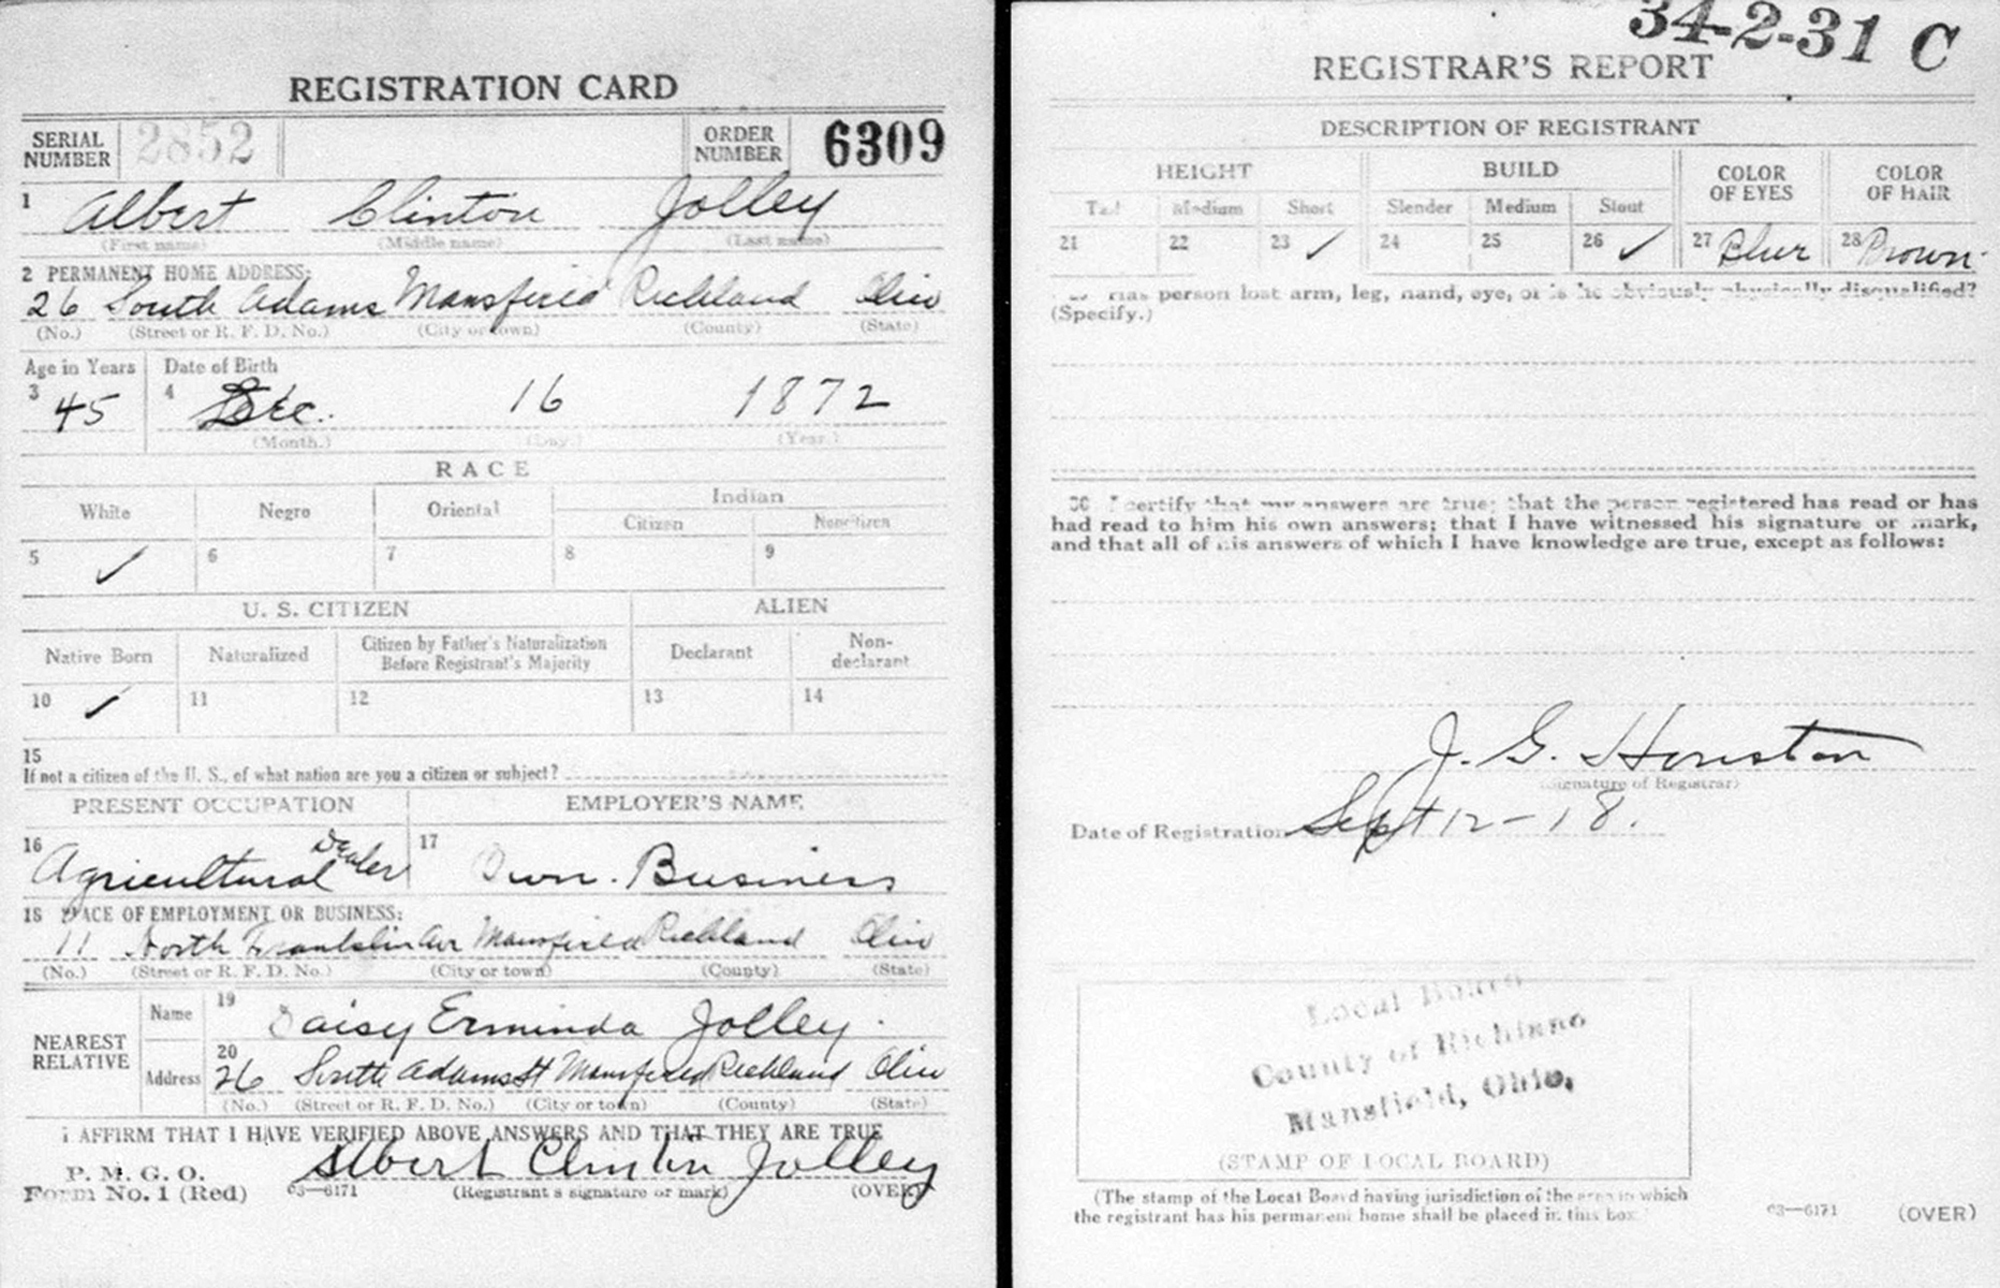 REGISTRATION CARD
SERIAL NUMBER 2852 ORDER NUMBER 6309
1 Albert Clinton Jolley
(First name) (Middle name) (Last name)
2 PERMANENT HOME ADDRESS:
26 South Adams Mansfield Richland Ohio
(No.) (Street or R. F. D. No.) (City or town) (County) (State)
Age in Years Date of Birth
3 45 4 Dec. 16 1872
(Month.) (Day.) (Year.)
RACE
White Negro Oriental Indian
Citizen Noncitizen
5 ✓ 6 7 8 9
U. S. CITIZEN ALIEN
Native Born Naturalized Citizen by Father's Naturalization Before Registrant's Majority Declarant Non-declarant
10 ✓ 11 12 13 14
15
If not a citizen of the U. S., of what nation are you a citizen or subject?
PRESENT OCCUPATION EMPLOYER'S NAME
16 Agricultural Dealer 17 Own Business
18 PLACE OF EMPLOYMENT OR BUSINESS:
11 North Franklin Av Mansfield Richland Ohio
(No.) (Street or R. F. D. No.) (City or town) (County) (State)
NEAREST RELATIVE
Name 19 Daisy Erminda Jolley
Address 20 26 South Adams St Mansfield Richland Ohio
(No.) (Street or R. F. D. No.) (City or town) (County) (State)
I AFFIRM THAT I HAVE VERIFIED ABOVE ANSWERS AND THAT THEY ARE TRUE
P. M. G. O.
Form No. 1 (Red) 03—6171 Albert Clinton Jolley
(Registrant's signature or mark) (OVER)
34-2-31 C
REGISTRAR'S REPORT
DESCRIPTION OF REGISTRANT
HEIGHT BUILD COLOR OF EYES COLOR OF HAIR
Tall Medium Short Slender Medium Stout
21 22 23 ✓ 24 25 26 ✓ 27 Blue 28 Brown
Has person lost arm, leg, hand, eye, or is he obviously physically disqualified?
(Specify.)
30 I certify that my answers are true; that the person registered has read or has
had read to him his own answers; that I have witnessed his signature or mark,
and that all of his answers of which I have knowledge are true, except as follows:
J. G. Houston
(Signature of Registrar)
Date of Registration Sept 12-18.
Local Board
County of Richland
Mansfield, Ohio,
(STAMP OF LOCAL BOARD)
(The stamp of the Local Board having jurisdiction of the area in which
the registrant has his permanent home shall be placed in this box.
03—6171 (OVER)